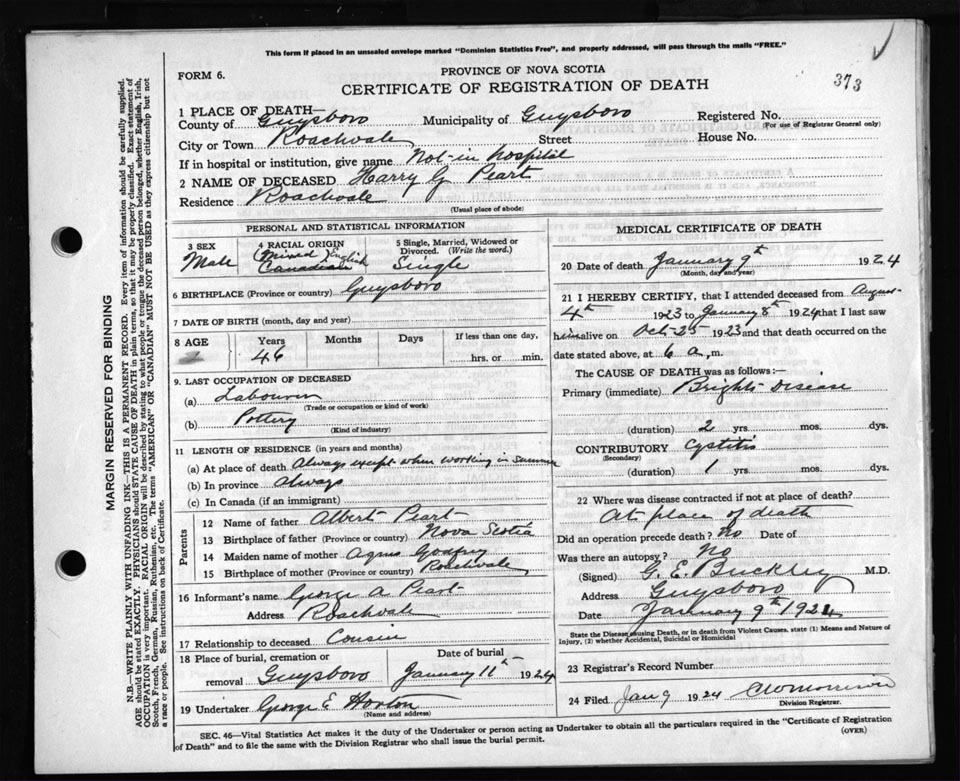 This form if placed in an unsealed envelope marked "Dominion Statistics Free", and properly addressed, will pass through the mails "FREE."
FORM 6.
PROVINCE OF NOVA SCOTIA
CERTIFICATE OF REGISTRATION OF DEATH
373
1 PLACE OF DEATH—
County of Guysboro Municipality of Guysboro Registered No.
(For use of Registrar General only)
City or Town Roachvale Street House No.
If in hospital or institution, give name Not-in hospital
2 NAME OF DECEASED Harry G Peart
Residence Roachvale
(Usual place of abode)
PERSONAL AND STATISTICAL INFORMATION
3 SEX
Male
4 RACIAL ORIGIN
(Mixed) English
Canadian
5 Single, Married, Widowed or Divorced. (Write the word.)
Single
6 BIRTHPLACE (Province or country) Guysboro
7 DATE OF BIRTH (month, day and year)
8 AGE Years Months Days If less than one day,
46 hrs. or min.
9. LAST OCCUPATION OF DECEASED
(a) Labourer
(Trade or occupation or kind of work)
(b) Pottery
(Kind of industry)
11 LENGTH OF RESIDENCE (in years and months)
(a) At place of death always except when working in summer
(b) In province always
(c) In Canada (if an immigrant)
Parents
12 Name of father Albert Peart
13 Birthplace of father (Province or country) Nova Scotia
14 Maiden name of mother Agnes Godfrey
15 Birthplace of mother (Province or country) Roachvale
16 Informant's name George A Peart
Address Roachvale
17 Relationship to deceased Cousin
18 Place of burial, cremation or removal Guysboro
Date of burial
January 11th 1924
19 Undertaker George E Horton
(Name and address)
MEDICAL CERTIFICATE OF DEATH
20 Date of death January 9th 1924
(Month, day and year)
21 I HEREBY CERTIFY, that I attended deceased from August
4th 1923 to January 8th 1924 that I last saw
him alive on Oct-25 1923 and that death occurred on the
date stated above, at 6 a. m.
The CAUSE OF DEATH was as follows:—
Primary (immediate) Brights Disease
(duration) 2 yrs. mos. dys.
CONTRIBUTORY Cystitis
(Secondary)
(duration) 1 yrs. mos. dys.
22 Where was disease contracted if not at place of death?
At place of death
Did an operation precede death? No Date of
Was there an autopsy? No
(Signed) G. E. Buckley M.D.
Address Guysboro
Date January 9th 1924
State the Disease causing Death, or in death from Violent Causes, state (1) Means and Nature of
Injury, (2) whether Accidental, Suicidal or Homicidal
23 Registrar's Record Number
24 Filed Jan 9 1924 CW Morrison
Division Registrar.
SEC. 46—Vital Statistics Act makes it the duty of the Undertaker or person acting as Undertaker to obtain all the particulars required in the "Certificate of Registration
of Death" and to file the same with the Division Registrar who shall issue the burial permit.
(OVER)
MARGIN RESERVED FOR BINDING
N.B.—WRITE PLAINLY WITH UNFADING INK—THIS IS A PERMANENT RECORD. Every item of information should be carefully supplied.
AGE should be stated EXACTLY. PHYSICIANS should STATE CAUSE OF DEATH in plain terms, so that it may be properly classified. Exact statement of
OCCUPATION is very important. RACIAL ORIGIN will be described by stating to what people or tongue the deceased person belonged, whether English, Irish,
Scotch, French, German, Russian, Ruthenian, etc. The terms "AMERICAN" OR "CANADIAN" MUST NOT BE USED as they express citizenship but not
a race or people. See instructions on back of Certificate.